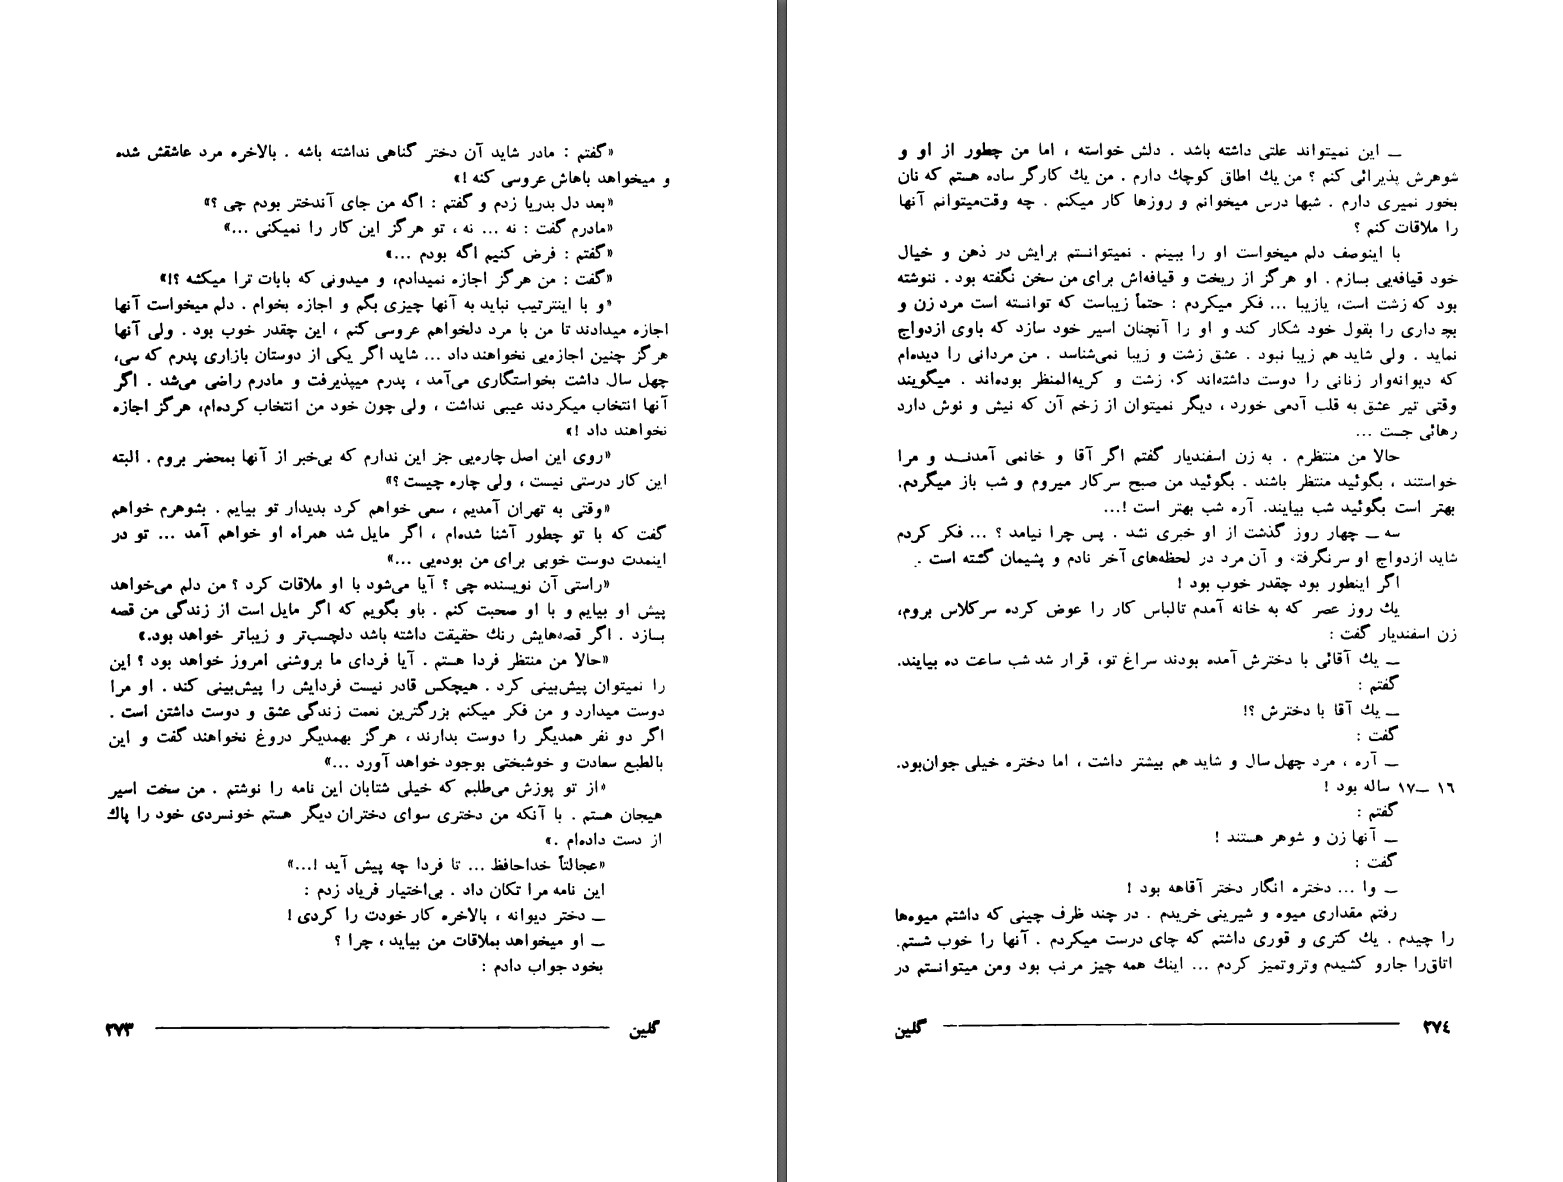 «گفتم : مادر شاید آن دختر گناهی نداشته باشه . بالاخره مرد عاشقش شده
و میخواهد باهاش عروسی کنه !»
«بعد دل بدریا زدم و گفتم : اگه من جای آندختر بودم چی ؟»
«مادرم گفت : نه ... نه ، تو هرگز این کار را نمیکنی ...»
«گفتم : فرض کنیم اگه بودم ...»
«گفت : من هرگز اجازه نمیدادم، و میدونی که بابات ترا میکشه ؟!»
«و با اینترتیب نباید به آنها چیزی بگم و اجازه بخوام . دلم میخواست آنها
اجازه میدادند تا من با مرد دلخواهم عروسی کنم ، این چقدر خوب بود . ولی آنها
هرگز چنین اجازه‌یی نخواهند داد ... شاید اگر یکی از دوستان بازاری پدرم که سی،
چهل سال داشت بخواستگاری می‌آمد ، پدرم میپذیرفت و مادرم راضی می‌شد . اگر
آنها انتخاب میکردند عیبی نداشت ، ولی چون خود من انتخاب کرده‌ام، هرگز اجازه
نخواهند داد !»
«روی این اصل چاره‌یی جز این ندارم که بی‌خبر از آنها بمحضر بروم . البته
این کار درستی نیست ، ولی چاره چیست ؟»
«وقتی به تهران آمدیم ، سعی خواهم کرد بدیدار تو بیایم . بشوهرم خواهم
گفت که با تو چطور آشنا شده‌ام ، اگر مایل شد همراه او خواهم آمد ... تو در
اینمدت دوست خوبی برای من بوده‌یی ...»
«راستی آن نویسنده چی ؟ آیا می‌شود با او ملاقات کرد ؟ من دلم می‌خواهد
پیش او بیایم و با او صحبت کنم . باو بگویم که اگر مایل است از زندگی من قصه
بسازد . اگر قصه‌هایش رنك حقیقت داشته باشد دلچسب‌تر و زیباتر خواهد بود.»
«حالا من منتظر فردا هستم . آیا فردای ما بروشنی امروز خواهد بود ؟ این
را نمیتوان پیش‌بینی کرد . هیچکس قادر نیست فردایش را پیش‌بینی کند . او مرا
دوست میدارد و من فکر میکنم بزرگترین نعمت زندگی عشق و دوست داشتن است .
اگر دو نفر همدیگر را دوست بدارند ، هرگز بهمدیگر دروغ نخواهند گفت و این
بالطبع سعادت و خوشبختی بوجود خواهد آورد ...»
«از تو پوزش می‌طلبم که خیلی شتابان این نامه را نوشتم . من سخت اسیر
هیجان هستم . با آنکه من دختری سوای دختران دیگر هستم خونسردی خود را پاك
از دست داده‌ام .»
«عجالتاً خداحافظ ... تا فردا چه پیش آید !...»
این نامه مرا تکان داد . بی‌اختیار فریاد زدم :
ــ دختر دیوانه ، بالاخره کار خودت را کردی !
ــ او میخواهد بملاقات من بیاید ، چرا ؟
بخود جواب دادم :
گلین ۲۷۳
ــ این نمیتواند علتی داشته باشد . دلش خواسته ، اما من چطور از او و
شوهرش پذیرائی کنم ؟ من یك اطاق کوچك دارم . من یك کارگر ساده هستم که نان
بخور نمیری دارم . شبها درس میخوانم و روزها کار میکنم . چه وقت‌میتوانم آنها
را ملاقات کنم ؟
با اینوصف دلم میخواست او را ببینم . نمیتوانستم برایش در ذهن و خیال
خود قیافه‌یی بسازم . او هرگز از ریخت و قیافه‌اش برای من سخن نگفته بود . ننوشته
بود که زشت است، یازیبا ... فکر میکردم : حتماً زیباست که توانسته است مرد زن و
بچه داری را بقول خود شکار کند و او را آنچنان اسیر خود سازد که باوی ازدواج
نماید . ولی شاید هم زیبا نبود . عشق زشت و زیبا نمی‌شناسد . من مردانی را دیده‌ام
که دیوانه‌وار زنانی را دوست داشته‌اند که زشت و کریه‌المنظر بوده‌اند . میگویند
وقتی تیر عشق به قلب آدمی خورد ، دیگر نمیتوان از زخم آن که نیش و نوش دارد
رهائی جست ...
حالا من منتظرم . به زن اسفندیار گفتم اگر آقا و خانمی آمدنــد و مرا
خواستند ، بگوئید منتظر باشند . بگوئید من صبح سرکار میروم و شب باز میگردم.
بهتر است بگوئید شب بیایند. آره شب بهتر است !...
سه ــ چهار روز گذشت از او خبری نشد . پس چرا نیامد ؟ ... فکر کردم
شاید ازدواج او سرنگرفته و آن مرد در لحظه‌های آخر نادم و پشیمان گشته است .
اگر اینطور بود چقدر خوب بود !
یك روز عصر که به خانه آمدم تالباس کار را عوض کرده سرکلاس بروم،
زن اسفندیار گفت :
ــ یك آقائی با دخترش آمده بودند سراغ تو، قرار شد شب ساعت ده بیایند.
گفتم :
ــ یك آقا با دخترش ؟!
گفت :
ــ آره ، مرد چهل سال و شاید هم بیشتر داشت ، اما دختره خیلی جوان‌بود.
۱۶ ــ۱۷ ساله بود !
گفتم :
ــ آنها زن و شوهر هستند !
گفت :
ــ وا ... دختره انگار دختر آقاهه بود !
رفتم مقداری میوه و شیرینی خریدم . در چند ظرف چینی که داشتم میوه‌ها
را چیدم . یك کتری و قوری داشتم که چای درست میکردم . آنها را خوب شستم.
اتاق‌را جارو کشیدم وتروتمیز کردم ... اینك همه چیز مرتب بود ومن میتوانستم در
۲۷٤ گلین